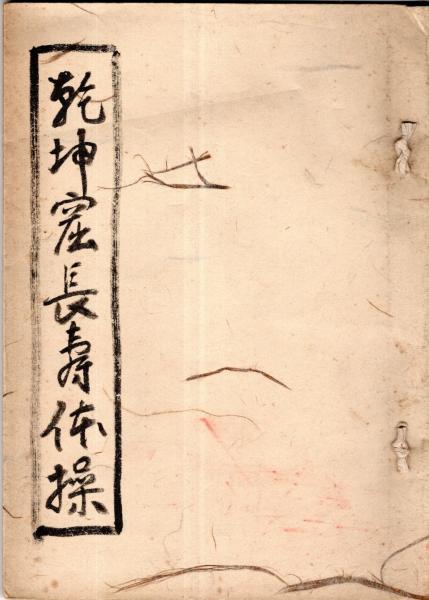 乾坤窟長寿体操